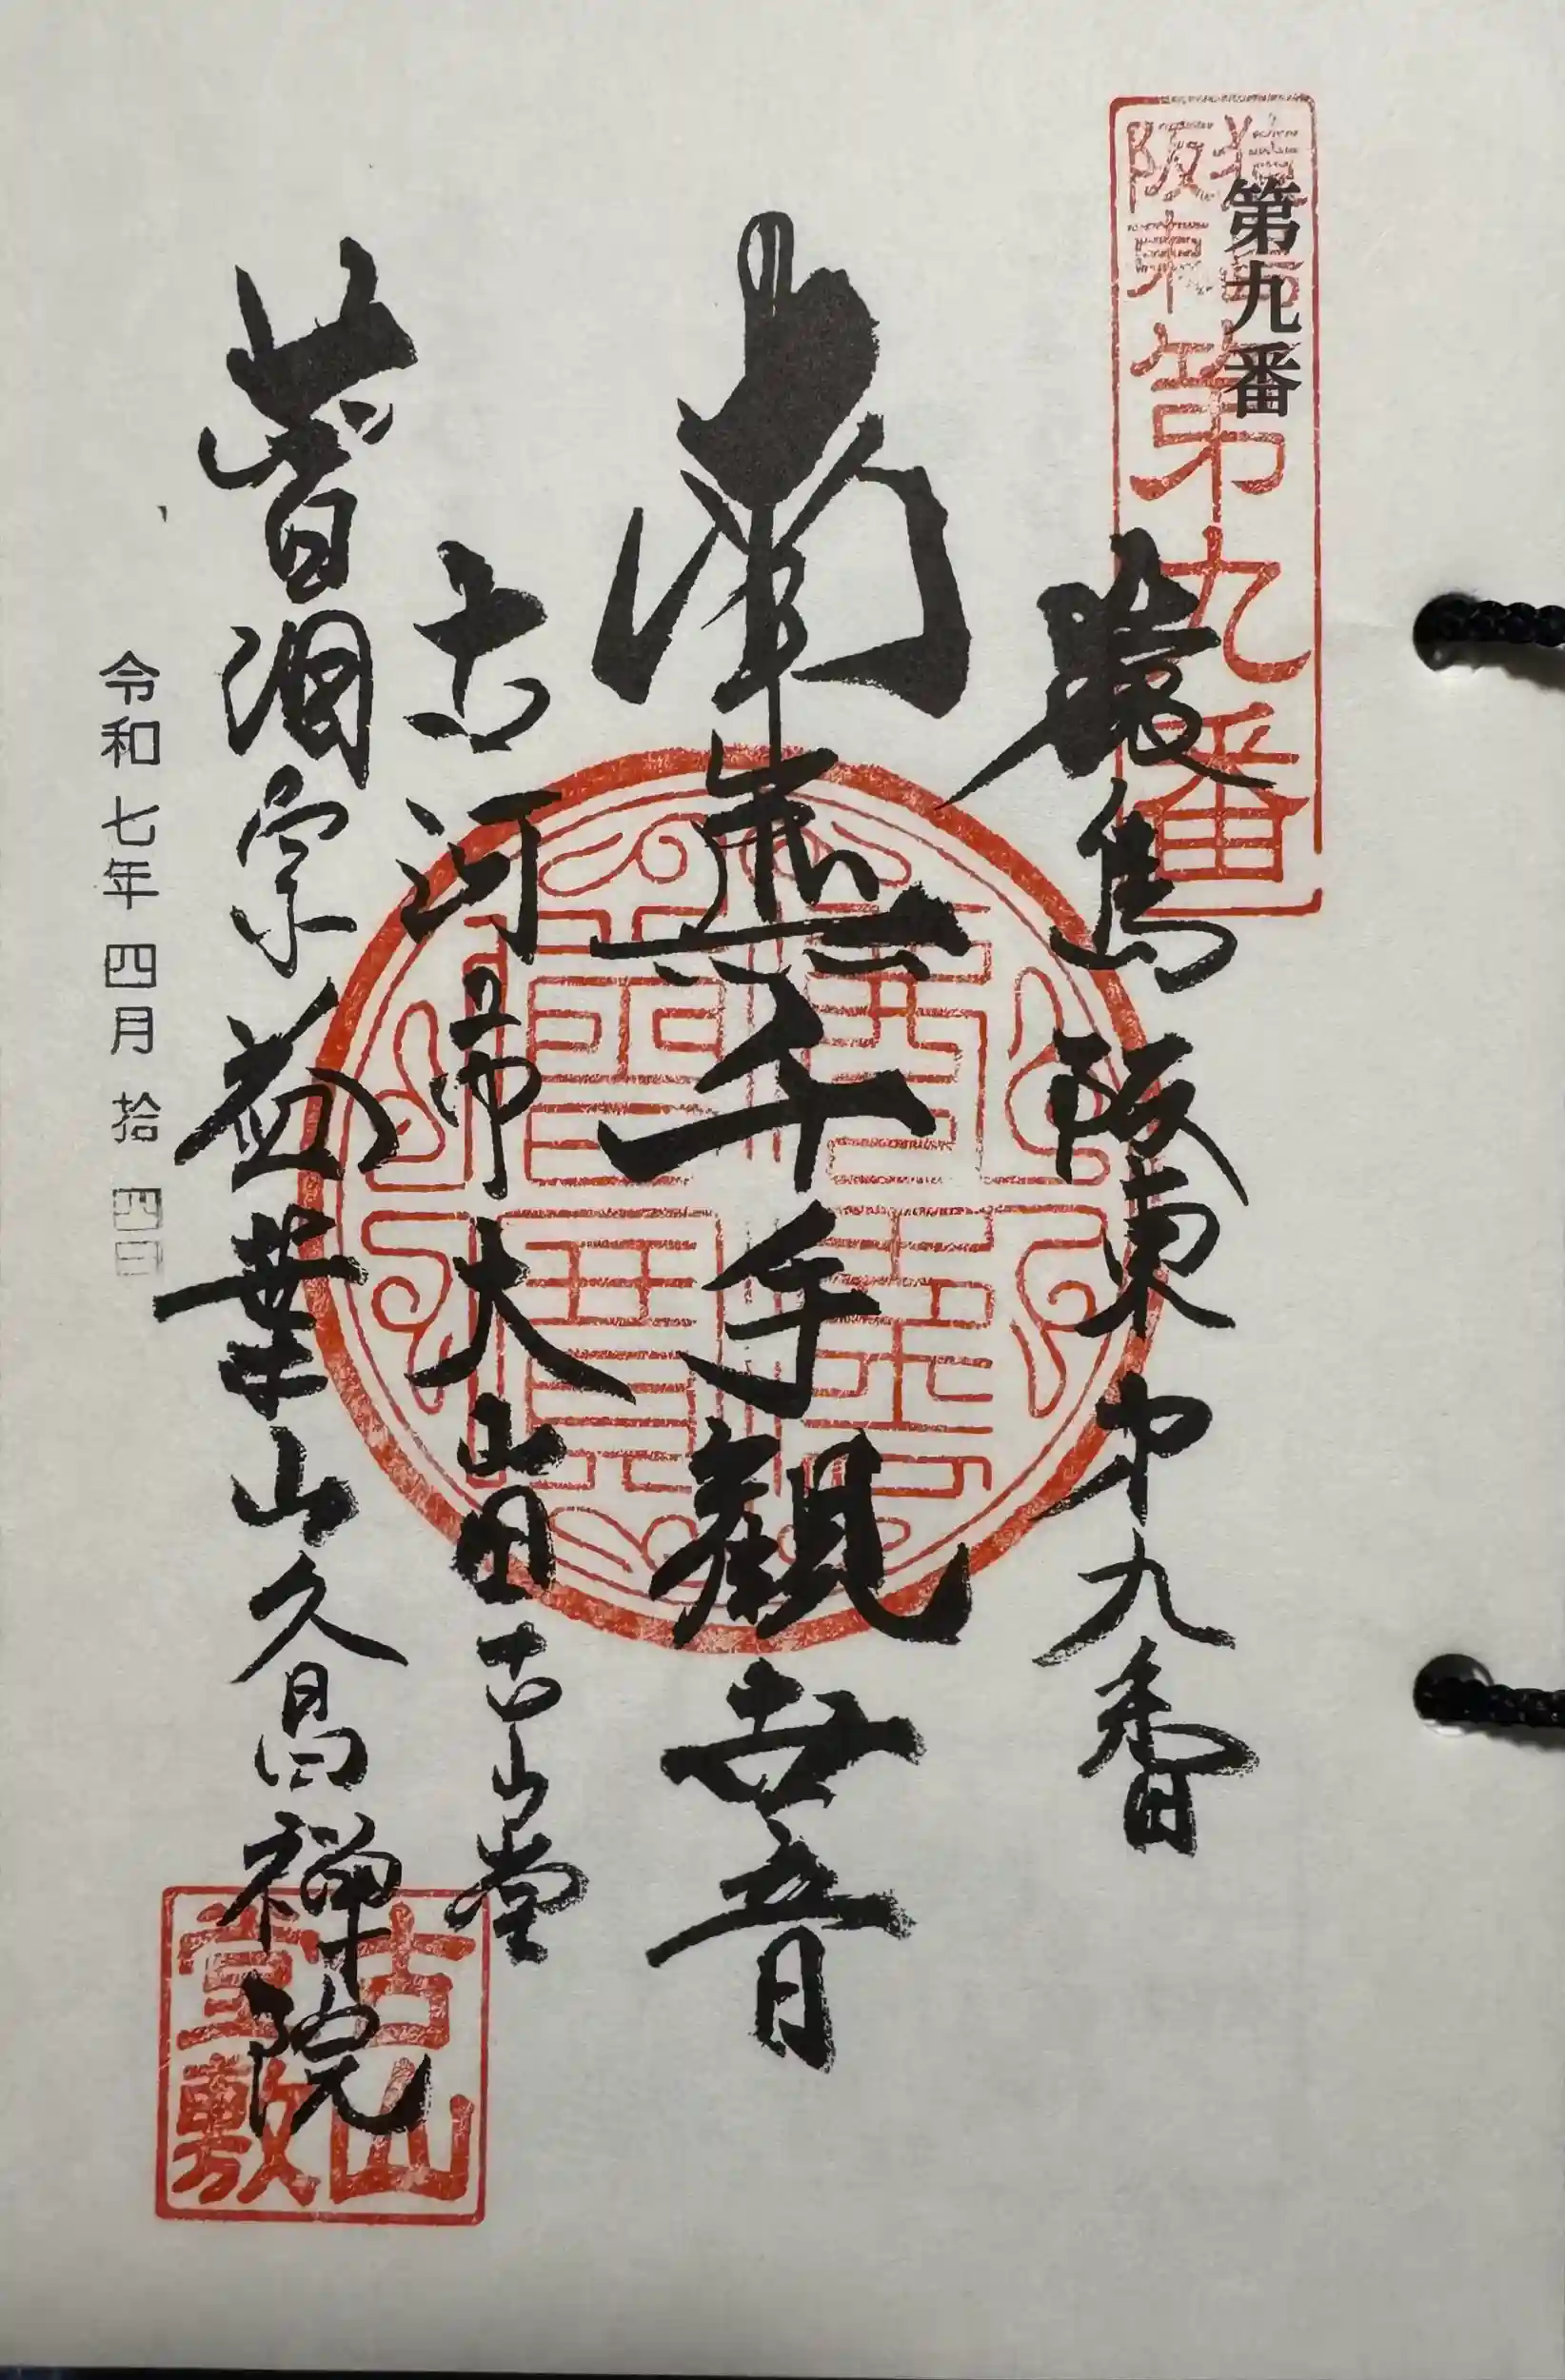 第九番
猿島
阪東
第九番
猿島阪東第九番
南無千手観世音
古河市大山田古山堂
曹洞宗 葉山久昌禅院
古山
堂敷
令和七年四月拾四日